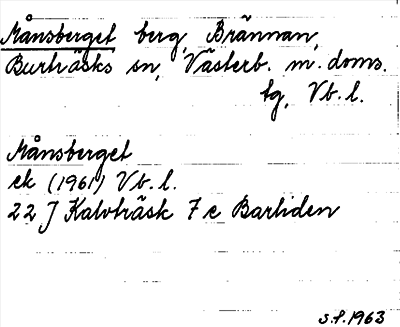 Månsberget berg, Brännan,
Burträsks sn, Västerb. m. doms.
tg, Vb. l.
Månsberget
ek (1961) Vb. l.
22 J Kalvträsk 7 e Barliden
S.P. 1963